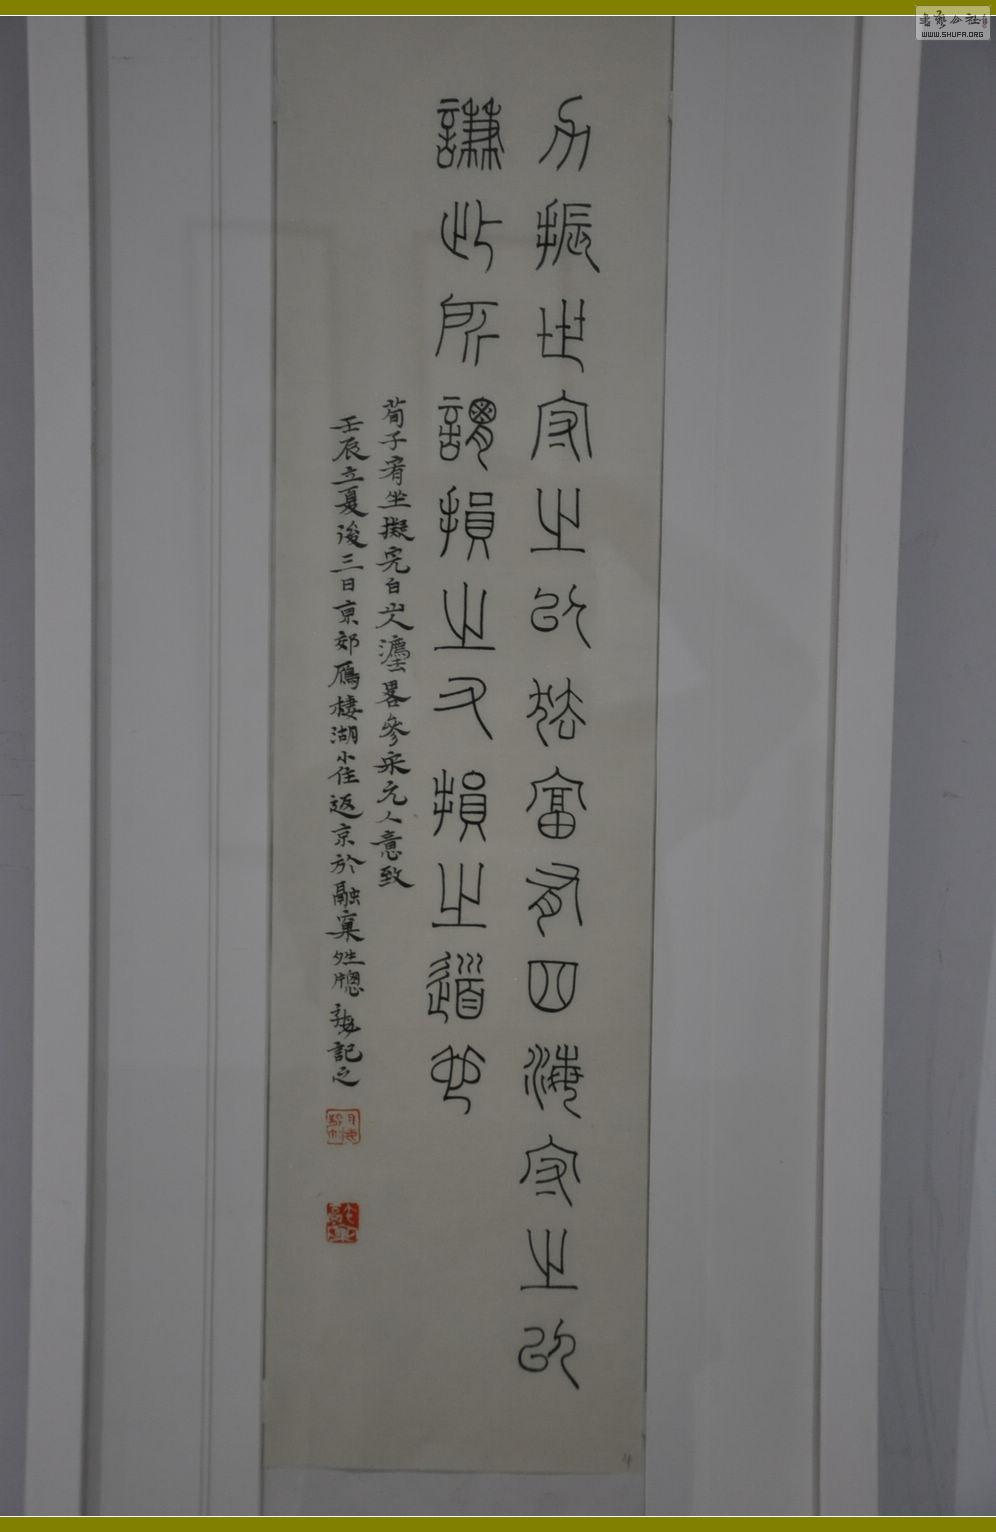 力振世守之以怯富有四海守之以
謙此所謂損之又損之道也
荀子宥坐擬完白山人灋略參宋元人意致
壬辰立夏後三日京郊雁棲湖小住返京於融窠燈牕記之
書藝公社
WWW.SHUFA.ORG
4